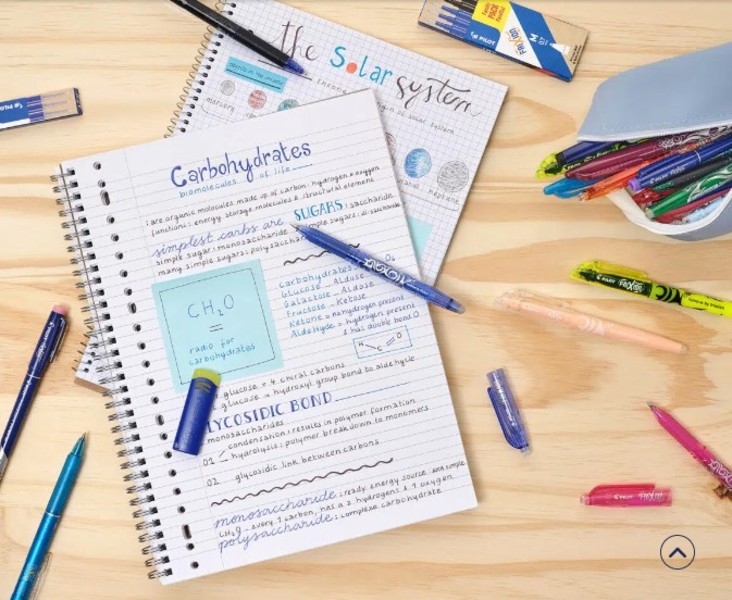 the Solar system
origin of solar system
mercury
neptune
Carbohydrates
biomolecules of life
: are organic molecules made up of carbon, hydrogen & oxygen
functions: energy, storage molecules & structural element
simplest carbs are SUGARS: saccharide
simple sugar: monosaccharide
simple sugars: di-saccharide
many simple sugars: polysaccharide
Carbohydrates
Glucose - Aldose
Galactose - Aldose
Fructose - Ketose
Ketone = no hydrogen present
Aldehyde = hydrogen present
& has double bond O
H
C
O
CH2O
=
radio for
carbohydrates
glucose = 4 chiral carbons
glucose = hydroxyl group bond to aldehyde
LYCOSIDIC BOND
monosaccharides
condensation: results in polymer formation
01
hydrolysis: polymer break down to monomers
02 glycosidic link between carbons
monosaccharide: ready energy source and simple
CH2O - every 1 carbon, has a 2 hydrogens & 1 oxygen
polysaccharide: complex carbohydrate
PILOT
FriXion
M
0.7
PILOT